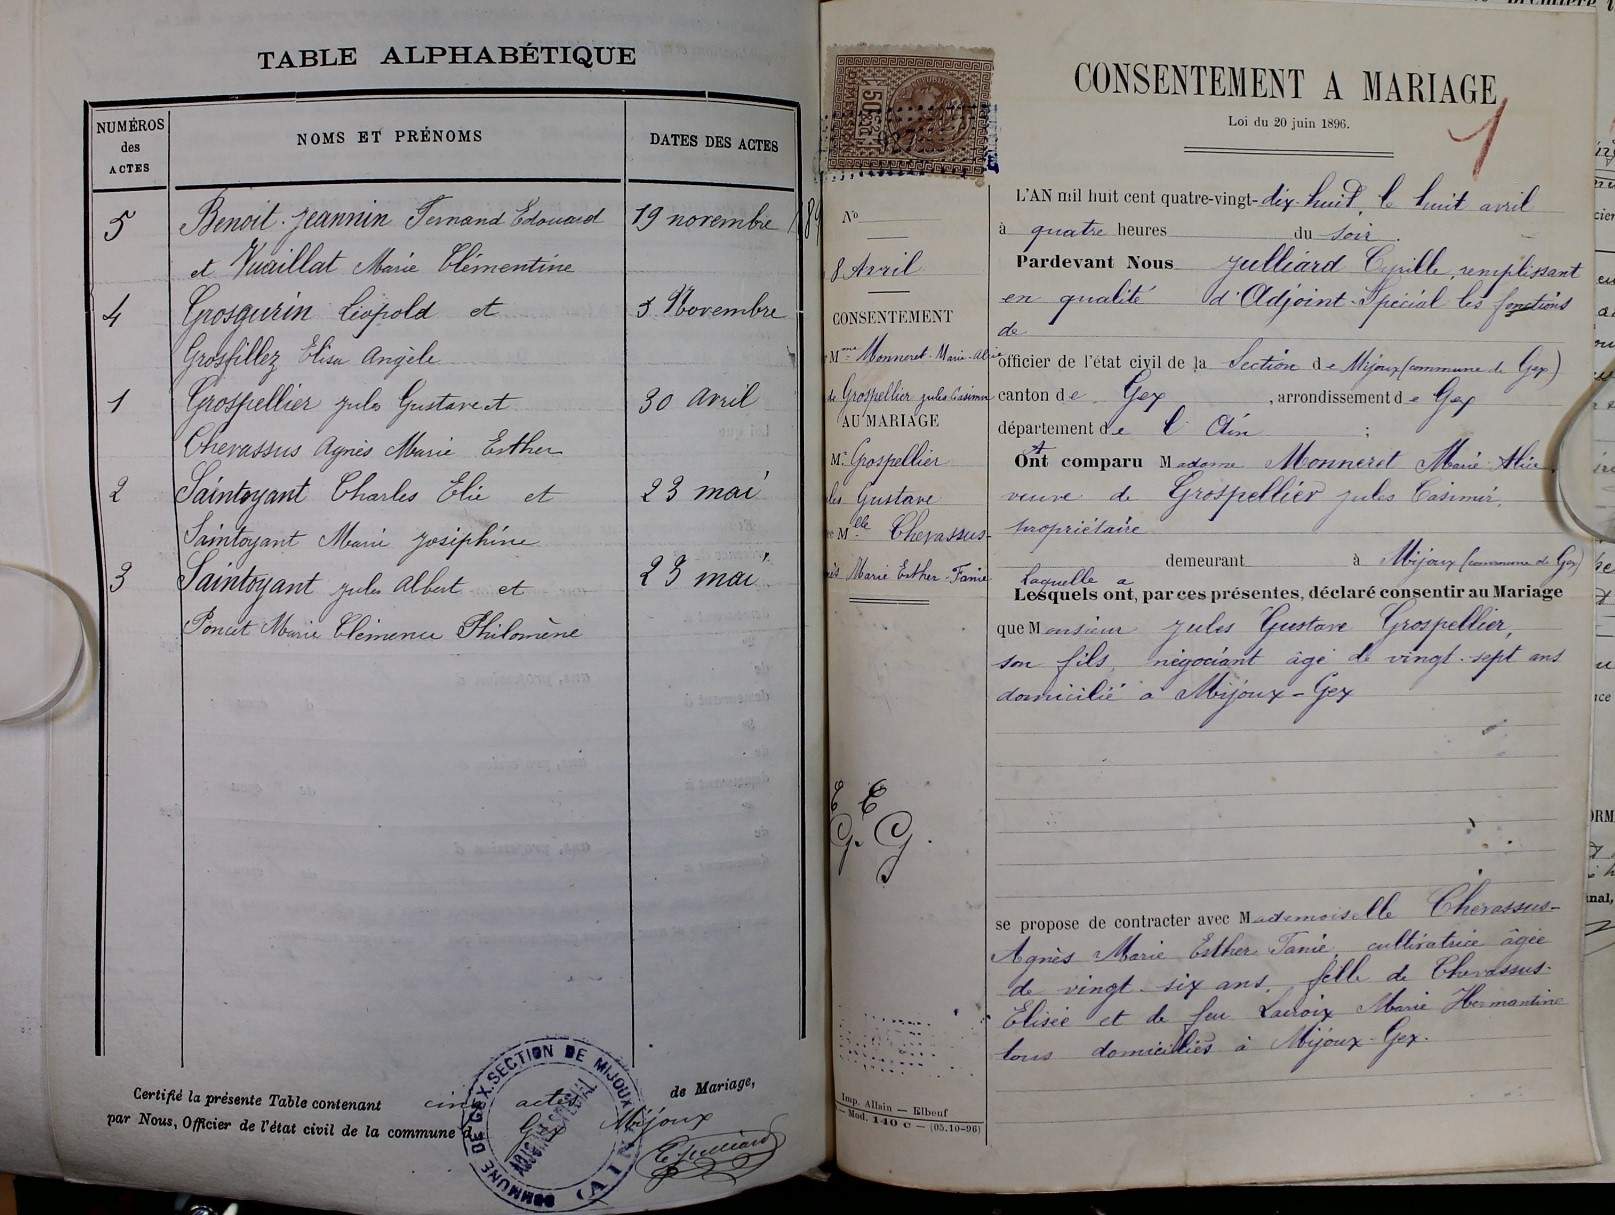 TABLE ALPHABÉTIQUE
NUMÉROS
des
ACTES
NOMS ET PRÉNOMS
DATES DES ACTES
5 Benoit-Jeannin Fernand Edouard 19 novembre 189
et Vuaillat Marie Clémentine
4 Grosgurin Léopold et 5 Novembre
Grosfillez Elisa Angèle
1 Grospellier Jules Gustave et 30 avril
Chevassus Agnès Marie Esther
2 Saintoyant Charles Elie et 23 mai
Saintoyant Marie Joséphine
3 Saintoyant Jules Albert et 23 mai
Poncet Marie Clémence Philomène
Certifié la présente Table contenant cinq actes de Mariage,
par Nous, Officier de l'état civil de la commune d Gex Mijoux
COMMUNE DE GEX. SECTION DE MIJOUX (AIN)
ADJOINT SPÉCIAL
C. Julliard
CONSENTEMENT A MARIAGE
Loi du 20 juin 1896.
1
50c
No
8 Avril
CONSENTEMENT
Mme Monneret Marie-Alice
de Grospellier Jules Casimir
AU MARIAGE
M. Grospellier
les Gustave
Mlle Chevassus-
ès Marie Esther-Fanie
E E
G. G.
Imp. Allain — Elbeuf
— Mod. 140 c — (05.10-96)
L'AN mil huit cent quatre-vingt-dix-huit, le huit avril
à quatre heures du soir.
Pardevant Nous Julliard Cyrille, remplissant
en qualité d'Adjoint-Spécial les fonctions
de
officier de l'état civil de la Section de Mijoux (commune de Gex)
canton de Gex, arrondissement de Gex
département de l'Ain ;
Ont A comparu Madame Monneret Marie-Alice,
veuve de Grospellier Jules Casimir,
propriétaire
demeurant à Mijoux (commune de Gex)
Laquelle a
Lesquels ont, par ces présentes, déclaré consentir au Mariage
que Monsieur Jules Gustave Grospellier,
son fils, négociant âgé de vingt-sept ans
domicilié à Mijoux-Gex
se propose de contracter avec Mademoiselle Chevassus-
Agnès Marie Esther Fanie, cultivatrice âgée
de vingt-six ans, fille de Chevassus-
Elisée et de feu Lacroix Marie Hermantine
tous domiciliés à Mijoux-Gex.